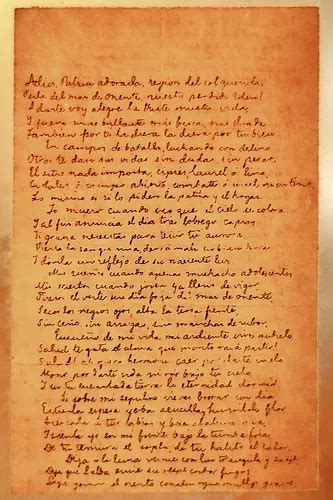 Adios, Patria adorada, region del sol querida,
Perla del mar de oriente, nuestro perdido Eden!
A darte voy alegre la triste mustia vida,
Y fuera más brillante más fresca, mas florida
Tambien por tí la diera la diera por tu bien
En campos de batalla, luchando con delirio
Otros te dan sus vidas sin dudas, sin pesar.
El sitio nada importa, cipres laurel o lirio,
Cadalso ó campo abierto, combate ó cruel martirio
Lo mismo es si lo piden la patria y el hogar.
Yo muero cuando veo que el cielo se colora
Y al fin anuncia el dia tras lobrego capuz
Si grana necesitas para teñir tu aurora,
Vierte la sangre mia, derramala en buen hora
Y dorela un reflejo de su naciente luz
Mis sueños cuando apenas muchacho adolescente,
Mis sueños cuando joven ya lleno de vigor,
Fueron el verte un dia joya del mar de oriente,
Secos los negros ojos, alta la tersa frente,
Sin ceño, sin arrugas, sin manchas de rubor.
Ensueño de mi vida, mi ardiente vivo anhelo
Salud te grita el alma que pronto va á partir!
Salud! ah que es hermoso caer por darte vuelo
Morir por darte vida morir bajo tu cielo
Y en tu encantada tierra la eternidad dormir
Si sobre mi sepulcro vieres brotar un dia
Entre la espesa yerba sencilla, humilde flor
a tus labios y besa al alma mia
Y sienta yo en mi frente bajo la tumba fria
De tu ternura el soplo, de tu halito el calor.
Deja a la luna verme con luz tranquila y suave
Deja que el alba envie su fugaz
Deja gemir al viento con su murmullo grave